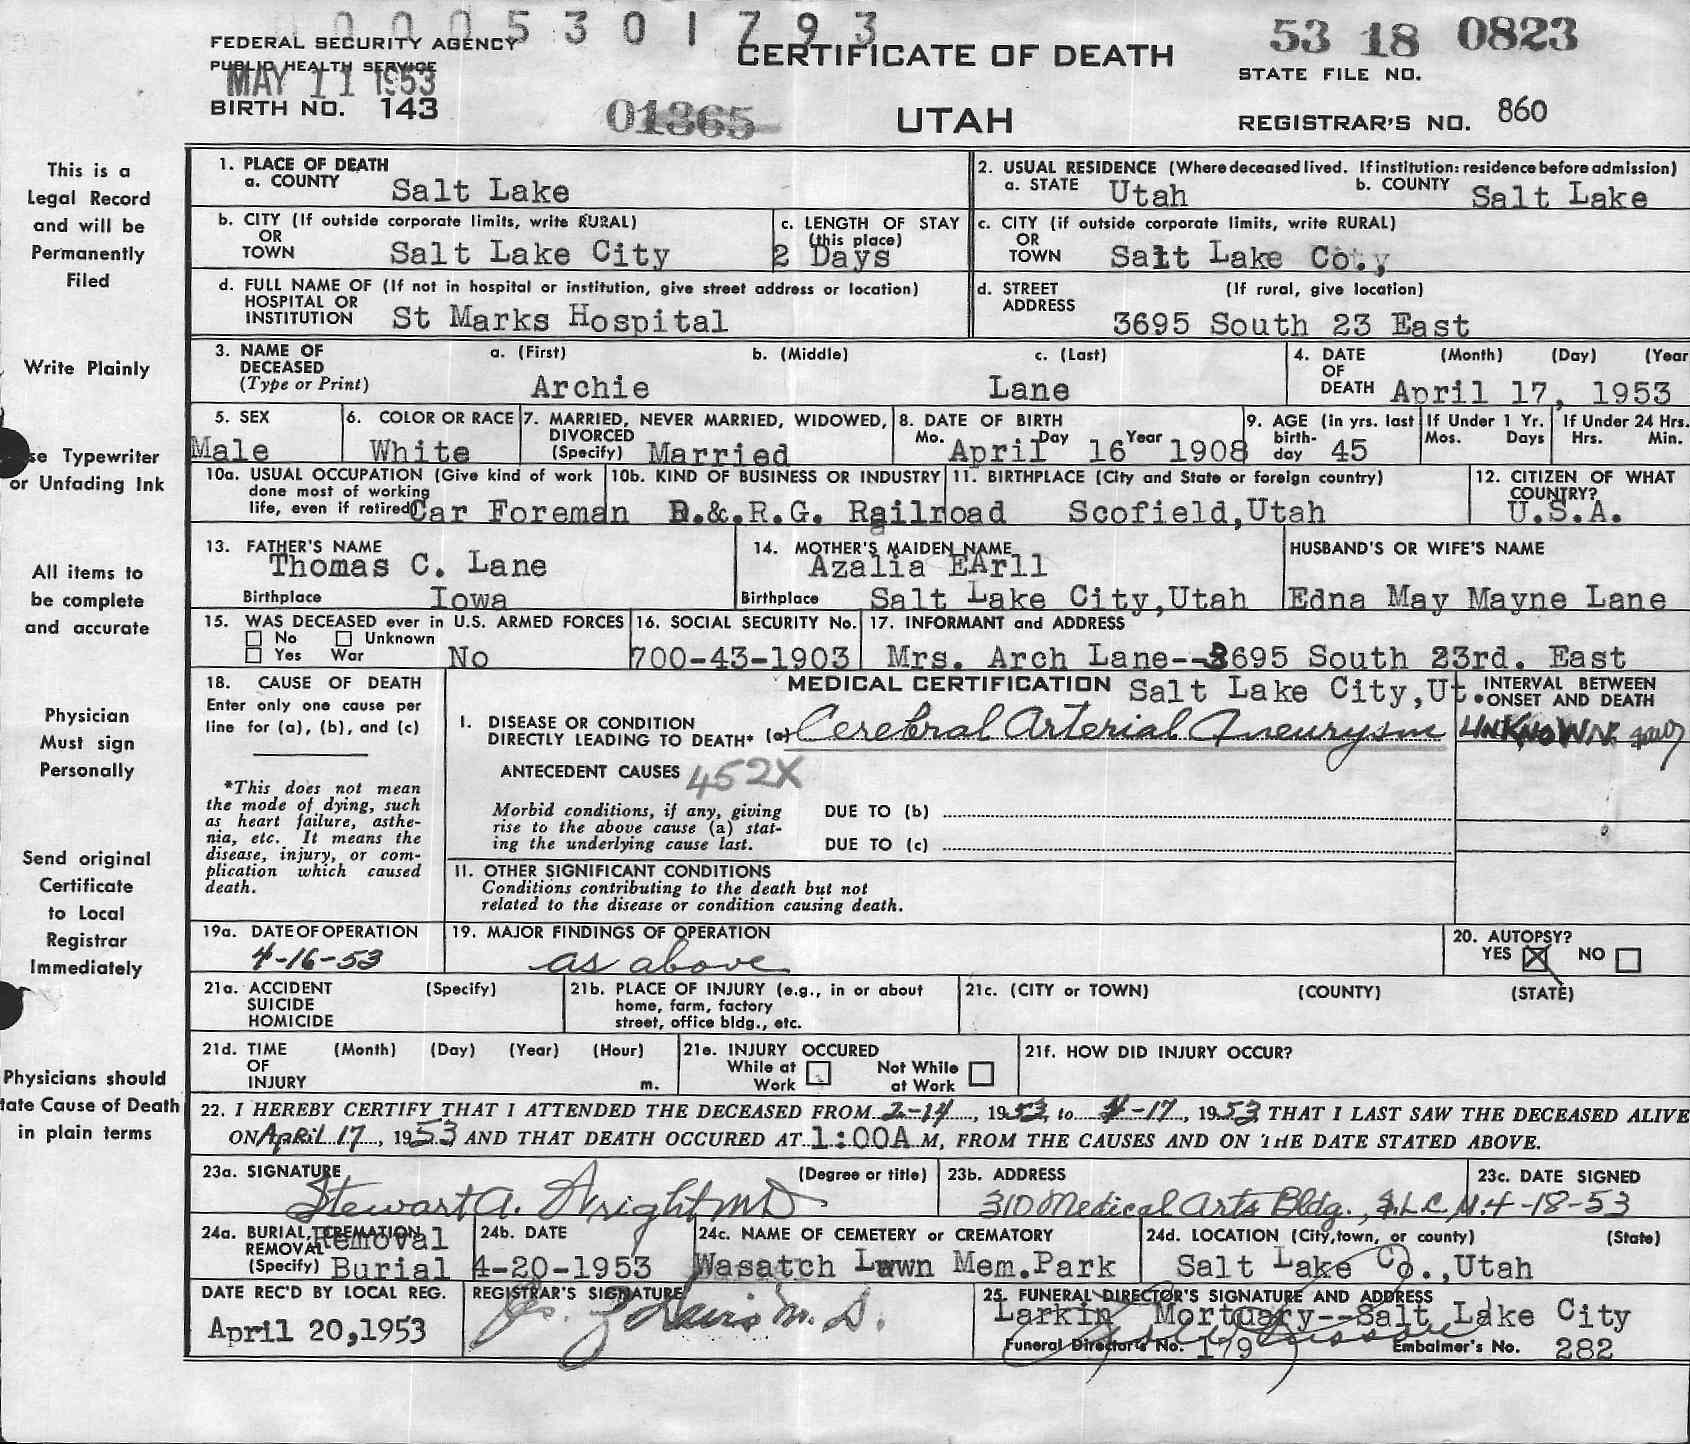 0005301793
FEDERAL SECURITY AGENCY
PUBLIC HEALTH SERVICE
MAY 11 1953
BIRTH NO. 143
01365
CERTIFICATE OF DEATH
UTAH
53 18 0823
STATE FILE NO.
REGISTRAR'S NO. 860
This is a
Legal Record
and will be
Permanently
Filed
Write Plainly
se Typewriter
or Unfading Ink
All items to
be complete
and accurate
Physician
Must sign
Personally
Send original
Certificate
to Local
Registrar
Immediately
Physicians should
tate Cause of Death
in plain terms
1. PLACE OF DEATH
a. COUNTY Salt Lake
2. USUAL RESIDENCE (Where deceased lived. If institution: residence before admission)
a. STATE Utah b. COUNTY Salt Lake
b. CITY (If outside corporate limits, write RURAL)
OR
TOWN Salt Lake City
c. LENGTH OF STAY
(this place)
2 Days
c. CITY (if outside corporate limits, write RURAL)
OR
TOWN Salt Lake
d. FULL NAME OF (If not in hospital or institution, give street address or location)
HOSPITAL OR
INSTITUTION St Marks Hospital
d. STREET (If rural, give location)
ADDRESS
3695 South 23 East
3. NAME OF a. (First) b. (Middle) c. (Last)
DECEASED
(Type or Print) Archie Lane
4. DATE (Month) (Day) (Year
OF
DEATH April 17, 1953
5. SEX
Male
6. COLOR OR RACE
White
7. MARRIED, NEVER MARRIED, WIDOWED,
DIVORCED
(Specify) Married
8. DATE OF BIRTH
Mo. Day Year
April 16 1908
9. AGE (in yrs. last
birth-
day 45
If Under 1 Yr.
Mos. Days
If Under 24 Hrs.
Hrs. Min.
10a. USUAL OCCUPATION (Give kind of work
done most of working
life, even if retired) Car Foreman
10b. KIND OF BUSINESS OR INDUSTRY
D.&.R.G. Railroad
11. BIRTHPLACE (City and State or foreign country)
Scofield,Utah
12. CITIZEN OF WHAT
COUNTRY?
U.S.A.
13. FATHER'S NAME
Thomas C. Lane
Birthplace Iowa
14. MOTHER'S MAIDEN NAME
Azalia EArll
Birthplace Salt Lake City,Utah
HUSBAND'S OR WIFE'S NAME
Edna May Mayne Lane
15. WAS DECEASED ever in U.S. ARMED FORCES
No Unknown
Yes War No
16. SOCIAL SECURITY No.
700-43-1903
17. INFORMANT and ADDRESS
Mrs. Arch Lane--3695 South 23rd. East
Salt Lake City,Ut.
18. CAUSE OF DEATH
Enter only one cause per
line for (a), (b), and (c)
*This does not mean
the mode of dying, such
as heart failure, asthe-
nia, etc. It means the
disease, injury, or com-
plication which caused
death.
MEDICAL CERTIFICATION
INTERVAL BETWEEN
ONSET AND DEATH
I. DISEASE OR CONDITION
DIRECTLY LEADING TO DEATH* (a) Cerebral Arterial Aneurysm
UNKNOWN
ANTECEDENT CAUSES 452X
Morbid conditions, if any, giving
rise to the above cause (a) stat-
ing the underlying cause last.
DUE TO (b)
DUE TO (c)
11. OTHER SIGNIFICANT CONDITIONS
Conditions contributing to the death but not
related to the disease or condition causing death.
19a. DATE OF OPERATION
4-16-53
19. MAJOR FINDINGS OF OPERATION
as above
20. AUTOPSY?
YES NO
21a. ACCIDENT (Specify)
SUICIDE
HOMICIDE
21b. PLACE OF INJURY (e.g., in or about
home, farm, factory
street, office bldg., etc.
21c. (CITY or TOWN) (COUNTY) (STATE)
21d. TIME (Month) (Day) (Year) (Hour)
OF
INJURY m.
21e. INJURY OCCURED
While at Not While
Work at Work
21f. HOW DID INJURY OCCUR?
22. I HEREBY CERTIFY THAT I ATTENDED THE DECEASED FROM 2-14, 1953, to 4-17, 1953 THAT I LAST SAW THE DECEASED ALIVE
ON April 17, 1953 AND THAT DEATH OCCURED AT 1:00A M, FROM THE CAUSES AND ON THE DATE STATED ABOVE.
23a. SIGNATURE (Degree or title)
Stewart A. Wright MD
23b. ADDRESS
310 Medical Arts Bldg., S.L.C.
23c. DATE SIGNED
4-18-53
24a. BURIAL, CREMATION,
REMOVAL Removal
(Specify) Burial
24b. DATE
4-20-1953
24c. NAME OF CEMETERY OR CREMATORY
Wasatch Lawn Mem.Park
24d. LOCATION (City,town, or county) (State)
Salt Lake Co.,Utah
DATE REC'D BY LOCAL REG.
April 20,1953
REGISTRAR'S SIGNATURE
Davis M. D.
25. FUNERAL DIRECTOR'S SIGNATURE AND ADDRESS
Larkin Mortuary--Salt Lake City
Funeral Director's No. 179 Embalmer's No. 282